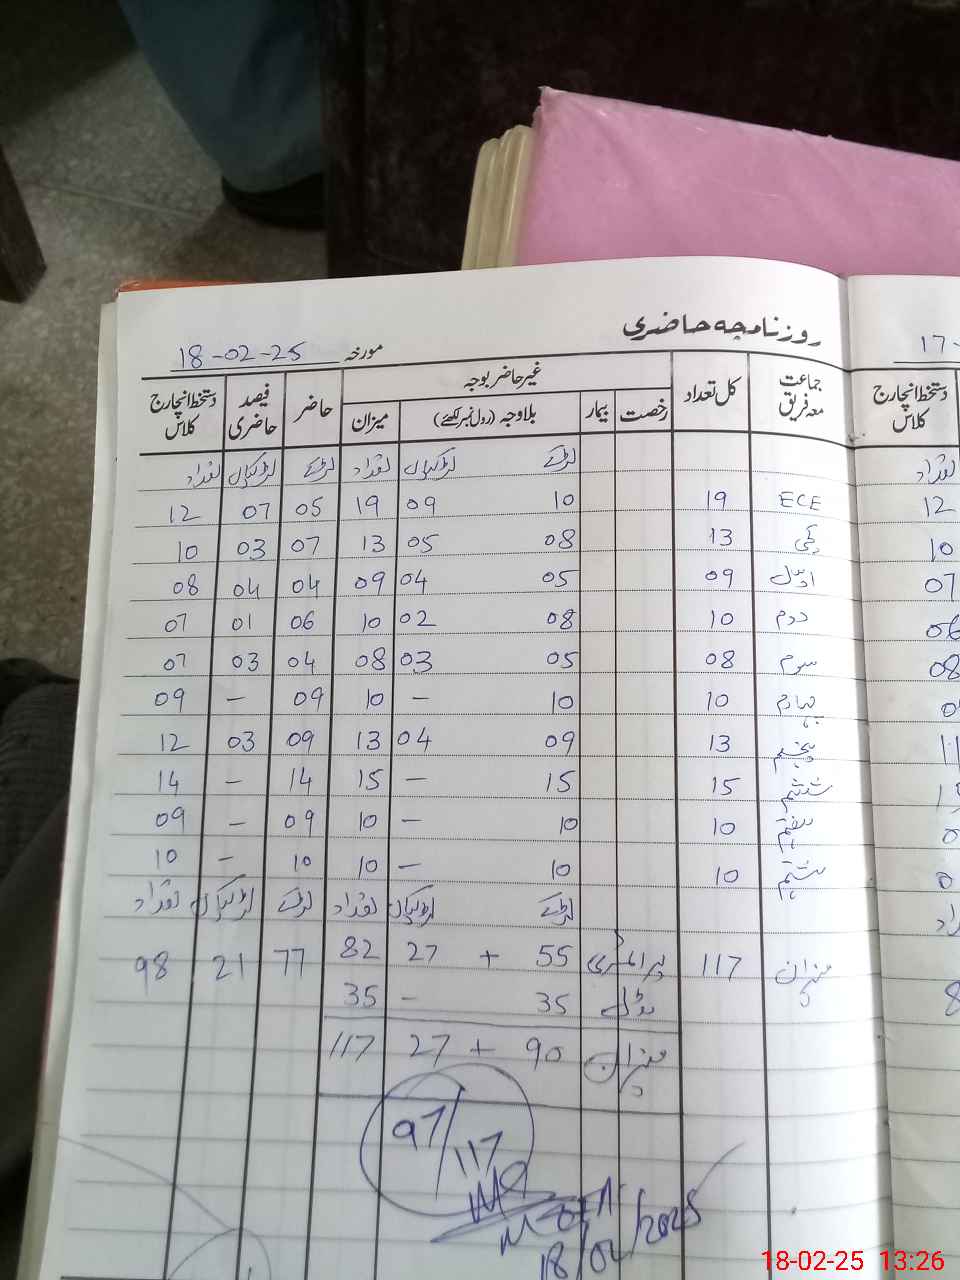 روزنامچہ حاضری
مورخہ 18-02-25
17-
جماعت معہ فریق کل تعداد غیر حاضر بوجہ حاضر فیصد حاضری دستخط انچارج کلاس
رخصت بیمار بلاوجہ (رول نمبر لکھئے) میزان
دستخط انچارج کلاس
لڑکے لڑکیاں تعداد لڑکے لڑکیاں تعداد
تعداد
ECE 19 10 09 19 05 07 12
12
کچی 13 08 05 13 07 03 10
10
اول 09 05 04 09 04 04 08
07
دوم 10 08 02 10 06 01 07
06
سوم 08 05 03 08 04 03 07
08
چہارم 10 10 – 10 09 – 09
پنجم 13 09 04 13 09 03 12
11
ششم 15 15 – 15 14 – 14
ہفتم 10 10 – 10 09 – 09
ہشتم 10 10 – 10 10 – 10
لڑکے لڑکیاں تعداد لڑکے لڑکیاں تعداد
میزان 117 پرائمری 55 + 27 82 77 21 98
مڈل 35 – 35
میزان 90 + 27 117
97/117
18/02/2025
18-02-25 13:26